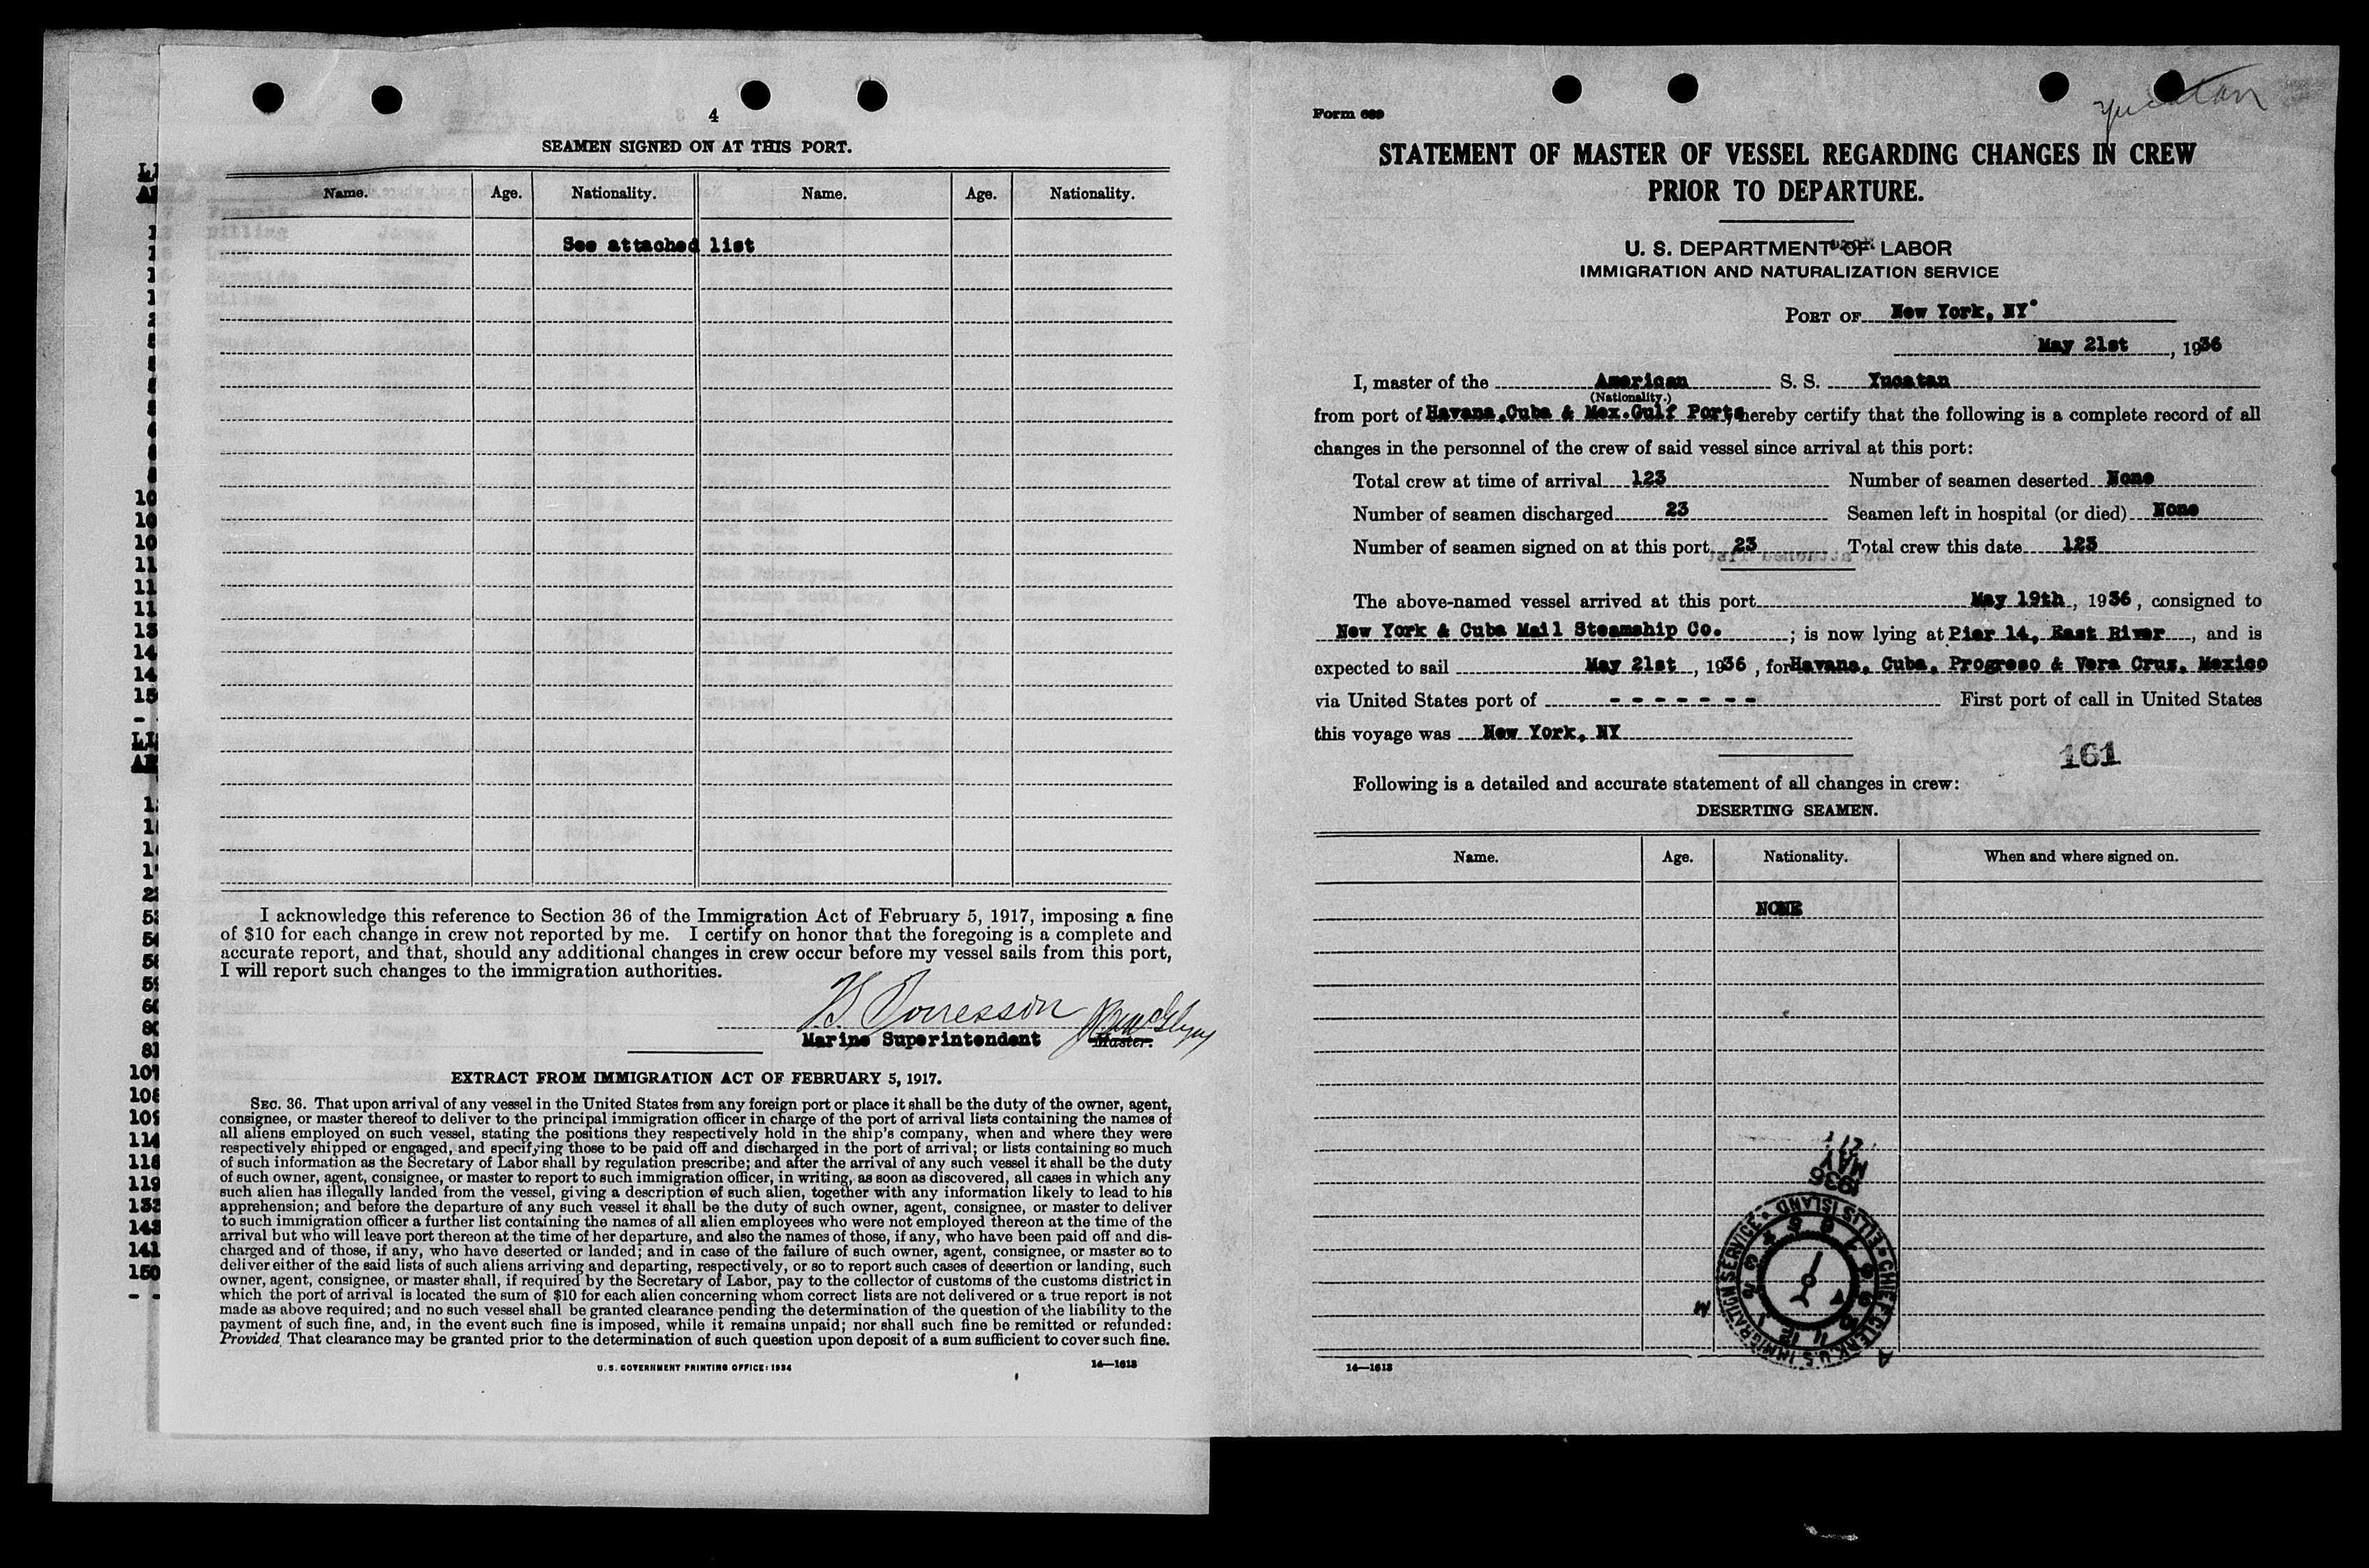 4
SEAMEN SIGNED ON AT THIS PORT.
Name. Age. Nationality. Name. Age. Nationality.
See attached list
I acknowledge this reference to Section 36 of the Immigration Act of February 5, 1917, imposing a fine
of $10 for each change in crew not reported by me. I certify on honor that the foregoing is a complete and
accurate report, and that, should any additional changes in crew occur before my vessel sails from this port,
I will report such changes to the immigration authorities.
Marine Superintendent Master.
EXTRACT FROM IMMIGRATION ACT OF FEBRUARY 5, 1917.
SEC. 36. That upon arrival of any vessel in the United States from any foreign port or place it shall be the duty of the owner, agent,
consignee, or master thereof to deliver to the principal immigration officer in charge of the port of arrival lists containing the names of
all aliens employed on such vessel, stating the positions they respectively hold in the ship's company, when and where they were
respectively shipped or engaged, and specifying those to be paid off and discharged in the port of arrival; or lists containing so much
of such information as the Secretary of Labor shall by regulation prescribe; and after the arrival of any such vessel it shall be the duty
of such owner, agent, consignee, or master to report to such immigration officer, in writing, as soon as discovered, all cases in which any
such alien has illegally landed from the vessel, giving a description of such alien, together with any information likely to lead to his
apprehension; and before the departure of any such vessel it shall be the duty of such owner, agent, consignee, or master to deliver
to such immigration officer a further list containing the names of all alien employees who were not employed thereon at the time of the
arrival but who will leave port thereon at the time of her departure, and also the names of those, if any, who have been paid off and dis-
charged and of those, if any, who have deserted or landed; and in case of the failure of such owner, agent, consignee, or master so to
deliver either of the said lists of such aliens arriving and departing, respectively, or so to report such cases of desertion or landing, such
owner, agent, consignee, or master shall, if required by the Secretary of Labor, pay to the collector of customs of the customs district in
which the port of arrival is located the sum of $10 for each alien concerning whom correct lists are not delivered or a true report is not
made as above required; and no such vessel shall be granted clearance pending the determination of the question of the liability to the
payment of such fine, and, in the event such fine is imposed, while it remains unpaid; nor shall such fine be remitted or refunded:
Provided, That clearance may be granted prior to the determination of such question upon deposit of a sum sufficient to cover such fine.
U. S. GOVERNMENT PRINTING OFFICE: 1934 14—1613
Yucatan
Form 689
STATEMENT OF MASTER OF VESSEL REGARDING CHANGES IN CREW
PRIOR TO DEPARTURE.
U. S. DEPARTMENT OF LABOR
IMMIGRATION AND NATURALIZATION SERVICE
PORT OF New York, NY
May 21st, 1936
I, master of the American S. S. Yucatan
(Nationality.)
from port of Havana,Cuba & Mex.Gulf Ports, hereby certify that the following is a complete record of all
changes in the personnel of the crew of said vessel since arrival at this port:
Total crew at time of arrival 123 Number of seamen deserted None
Number of seamen discharged 23 Seamen left in hospital (or died) None
Number of seamen signed on at this port 23 Total crew this date 123
The above-named vessel arrived at this port May 19th, 1936, consigned to
New York & Cuba Mail Steamship Co. ; is now lying at Pier 14, East River, and is
expected to sail May 21st, 1936, for Havana, Cuba, Progreso & Vera Cruz, Mexico
via United States port of - - - - - - - First port of call in United States
this voyage was New York, NY
161
Following is a detailed and accurate statement of all changes in crew:
DESERTING SEAMEN.
Name. Age. Nationality. When and where signed on.
NONE
1936
MAY
21
CHIEF CLERK U.S. IMMIGRATION SERVICE ELLIS ISLAND
14—1613